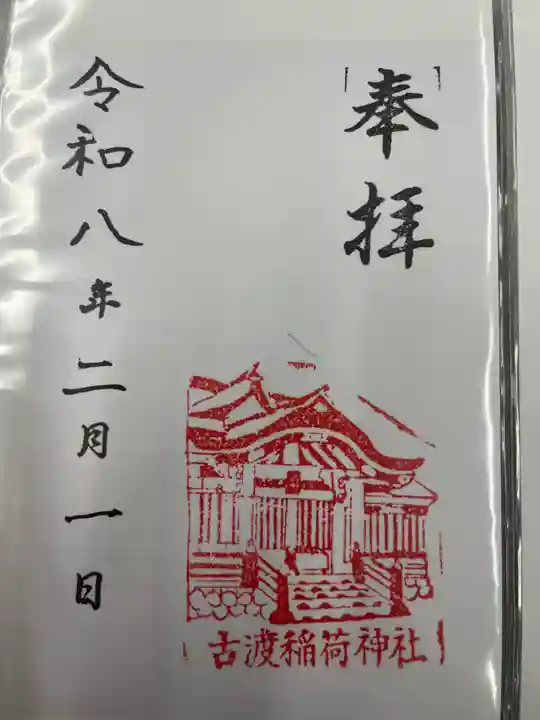 奉拝
古渡稲荷神社
令和八年二月一日